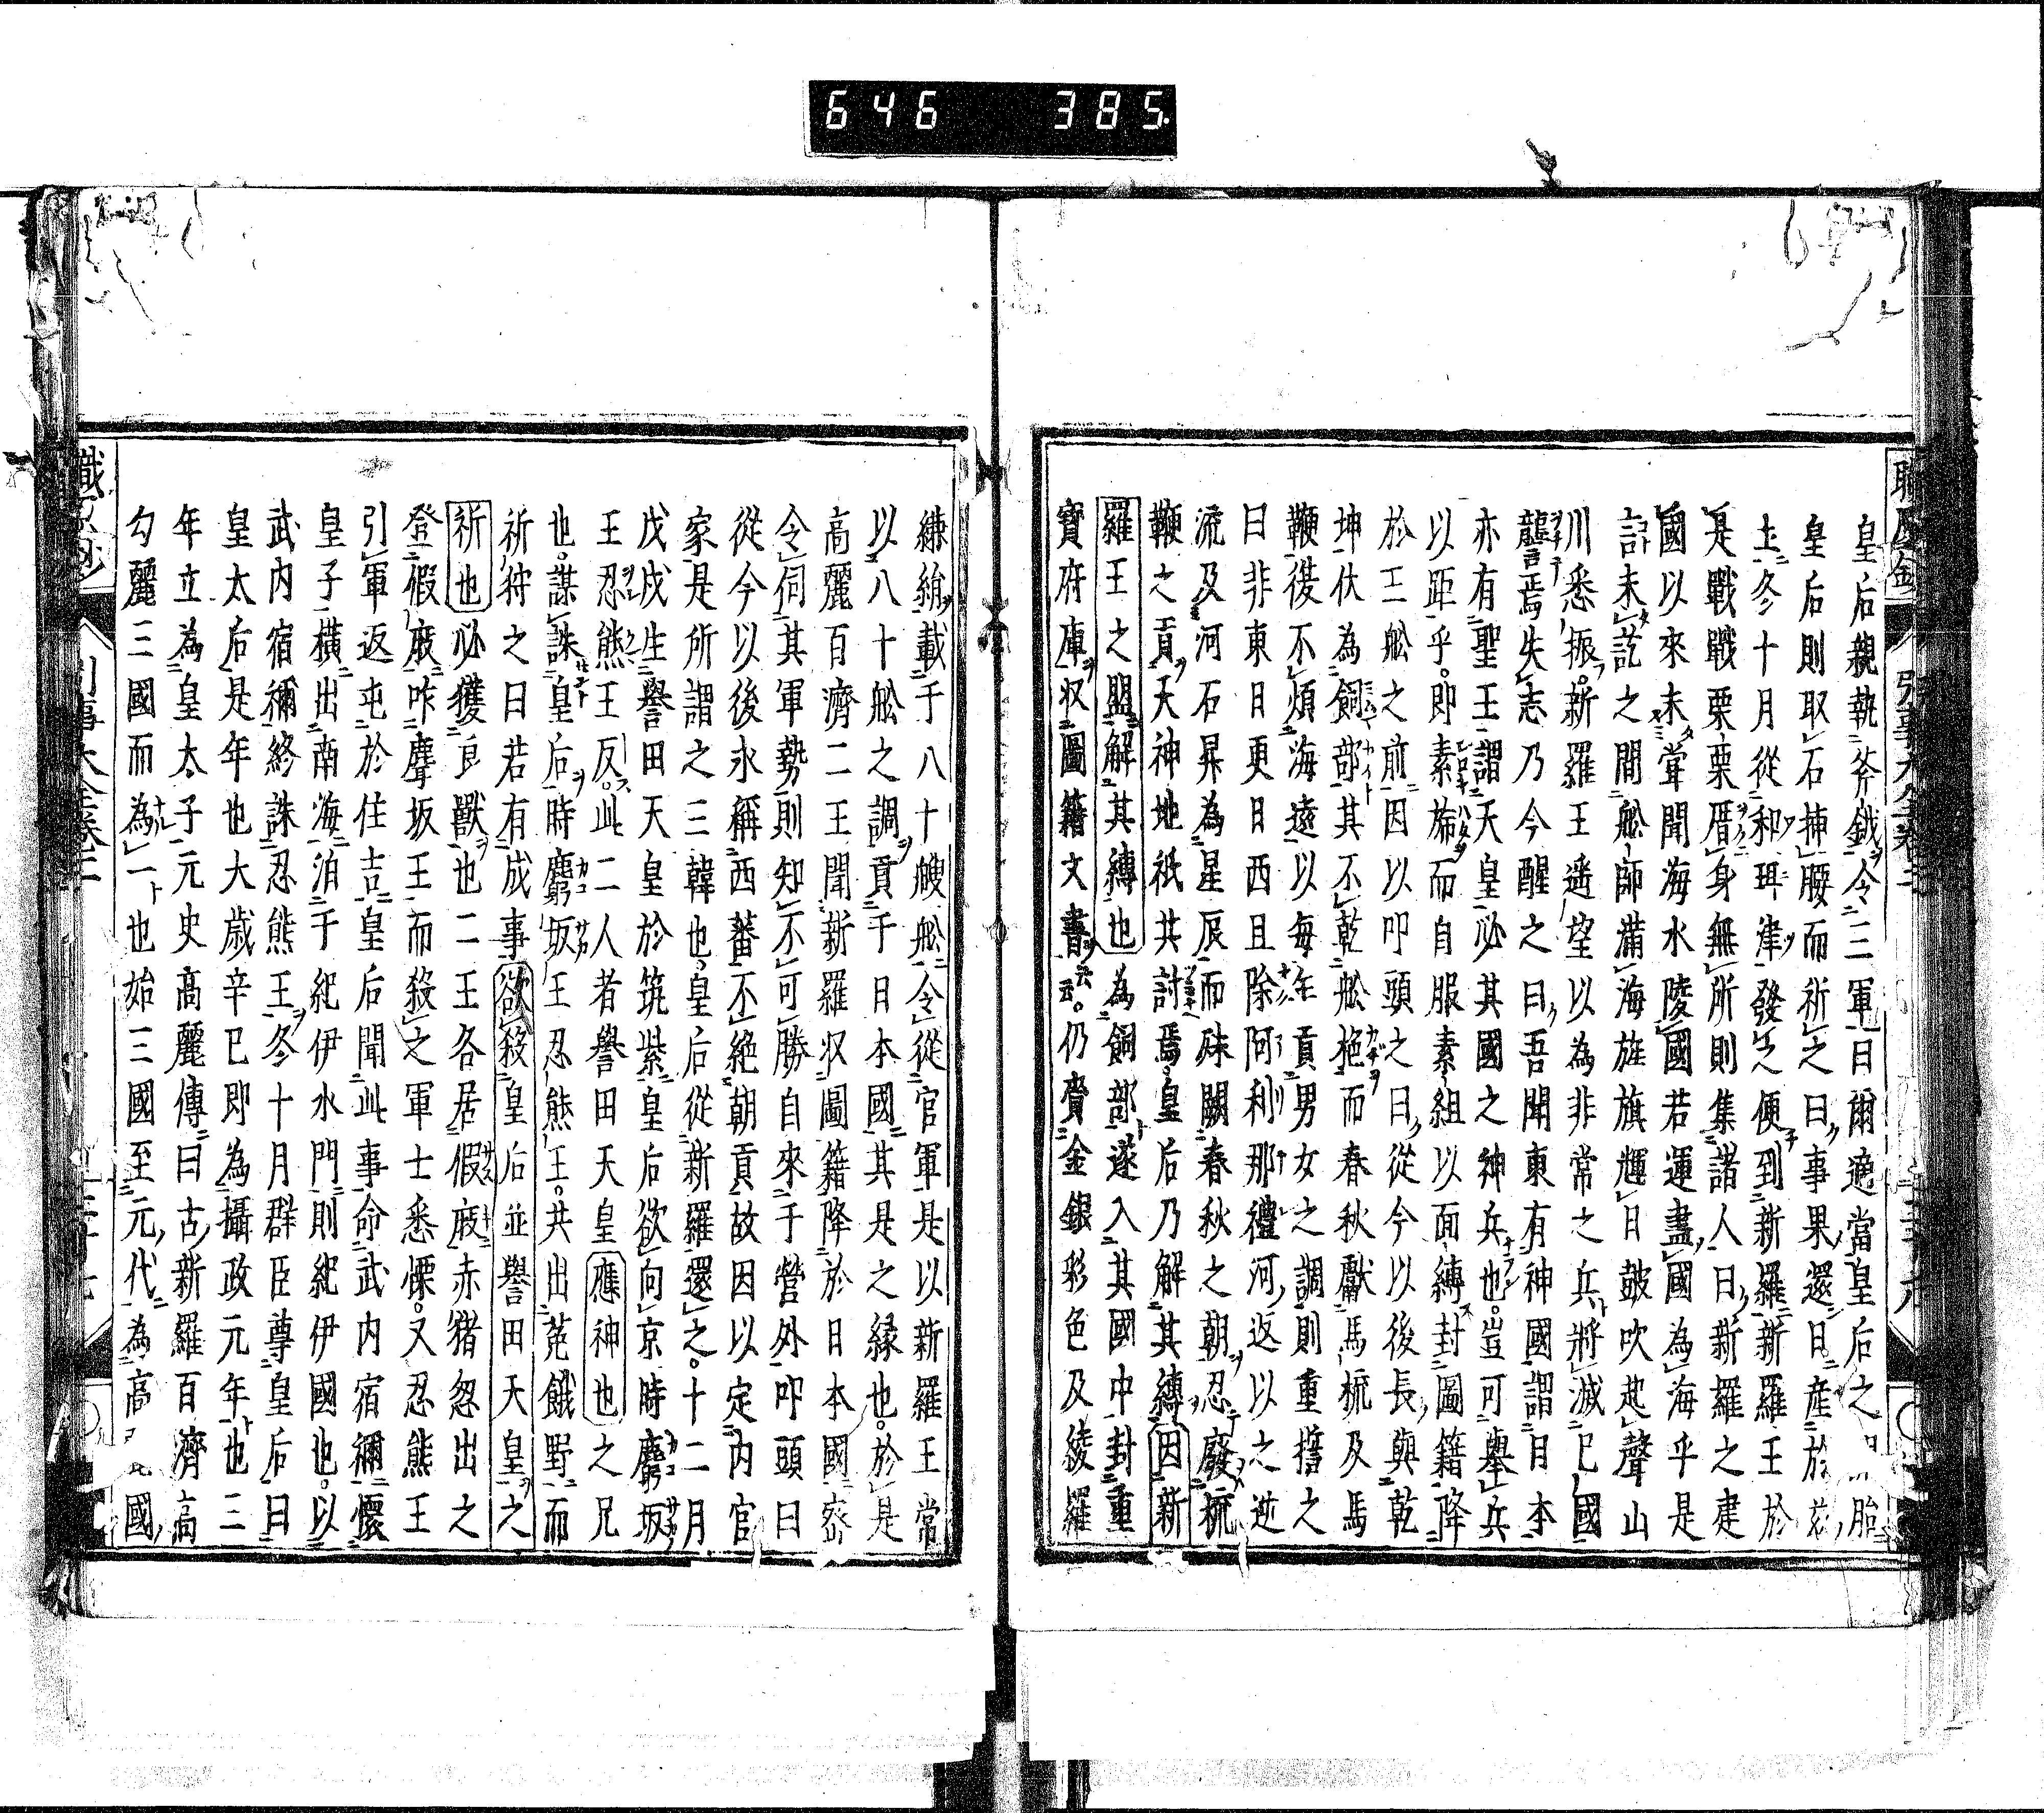 646 385.
皇后親執斧鉞令三軍曰爾適當皇后之胎
皇后則取石挿腰而祈之曰事果還日産於茲
土冬十月從和珥津發之便到新羅新羅王於
是戰戰栗栗厝身無所則集諸人曰新羅之建
國以來未甞聞海水陵國若運盡國為海乎是
言未訖之間舩師滿海旌旗輝日鼓吹起聲山
川悉振新羅王遥望以為非常之兵將滅已國
讋焉失志乃今醒之曰吾聞東有神國謂日本
亦有聖王謂天皇必其國之神兵也豈可擧兵
以距乎即素旆而自服素組以面縛封圖籍降
於王舩之前因以叩頭之曰從今以後長與乾
坤伏為飼部其不乾舩柂而春秋獻馬梳及馬
鞭復不煩海遠以毎年貢男女之調則重誓之
曰非東日更日西且除阿利那禮河返以之逆
流及河石昇為星辰而殊闕春秋之朝忍廢梳
鞭之貢天神地祇其討焉皇后乃解其縛因新
羅王之盟解其縛也為飼部遂入其國中封重
寶府庫収圖籍文書云云仍賷金銀彩色及綾羅
縑絹載于八十艘舩令從官軍是以新羅王常
以八十舩之調貢于日本國其是之縁也於是
高麗百濟二王聞新羅収圖籍降於日本國密
令伺其軍勢則知不可勝自來于營外叩頭曰
從今以後永稱西蕃不絶朝貢故因以定内官
家是所謂之三韓也皇后從新羅還之十二月
戊戌生譽田天皇於筑紫皇后欲向京時麛坂
王忍熊王反此二人者譽田天皇應神也之兄
也謀誅皇后時麛坂王忍熊王共出菟餓野而
祈狩之曰若有成事欲殺皇后並譽田天皇之
祈也必獲良獸也二王各居假庪赤猪忽出之
登假庪咋麛坂王而殺之軍士悉慄又忍熊王
引軍返屯於住吉皇后聞此事命武内宿禰懷
皇子横出南海泊于紀伊水門則紀伊國也以
武内宿禰終誅忍熊王冬十月群臣尊皇后曰
皇太后是年也大歳辛巳即為攝政元年也三
年立為皇太子元史高麗傳曰古新羅百濟高
勾麗三國而為一也始三國至元代為高國